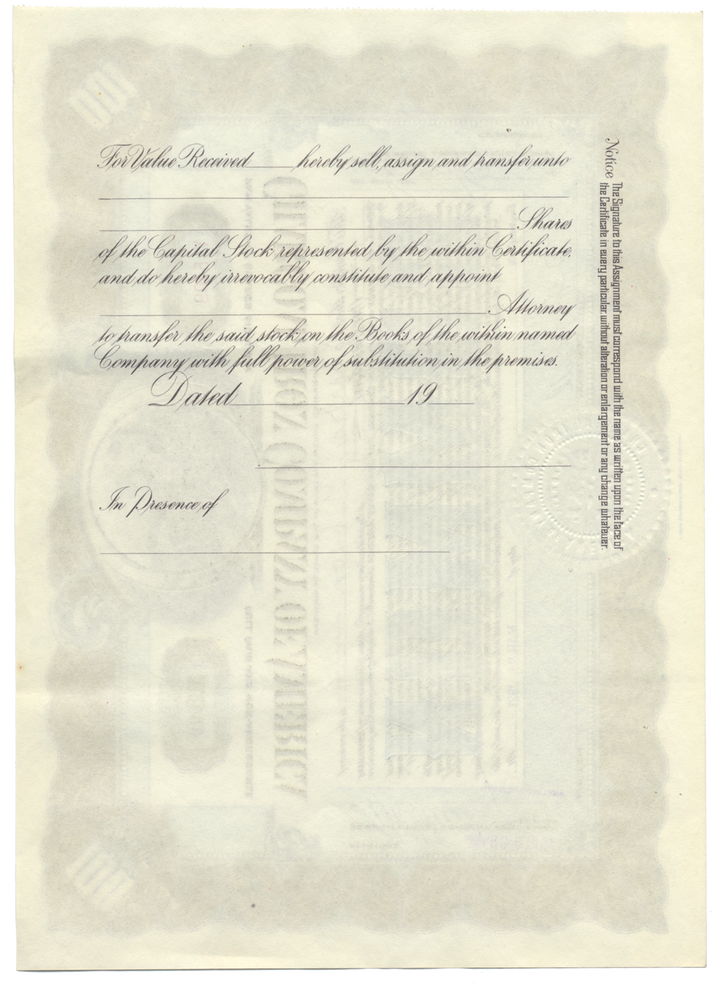 For Value Received____hereby sell, assign and transfer unto
Shares
of the Capital Stock represented by the within Certificate,
and do hereby irrevocably constitute and appoint
Attorney
to transfer the said stock on the Books of the within named
Company with full power of substitution in the premises.
Dated____19____
In Presence of
Notice. The Signature to this Assignment must correspond with the name as written upon the face of
the Certificate in every particular without alteration or enlargement or any change whatever.
COMPANY OF AMERICA
100
100